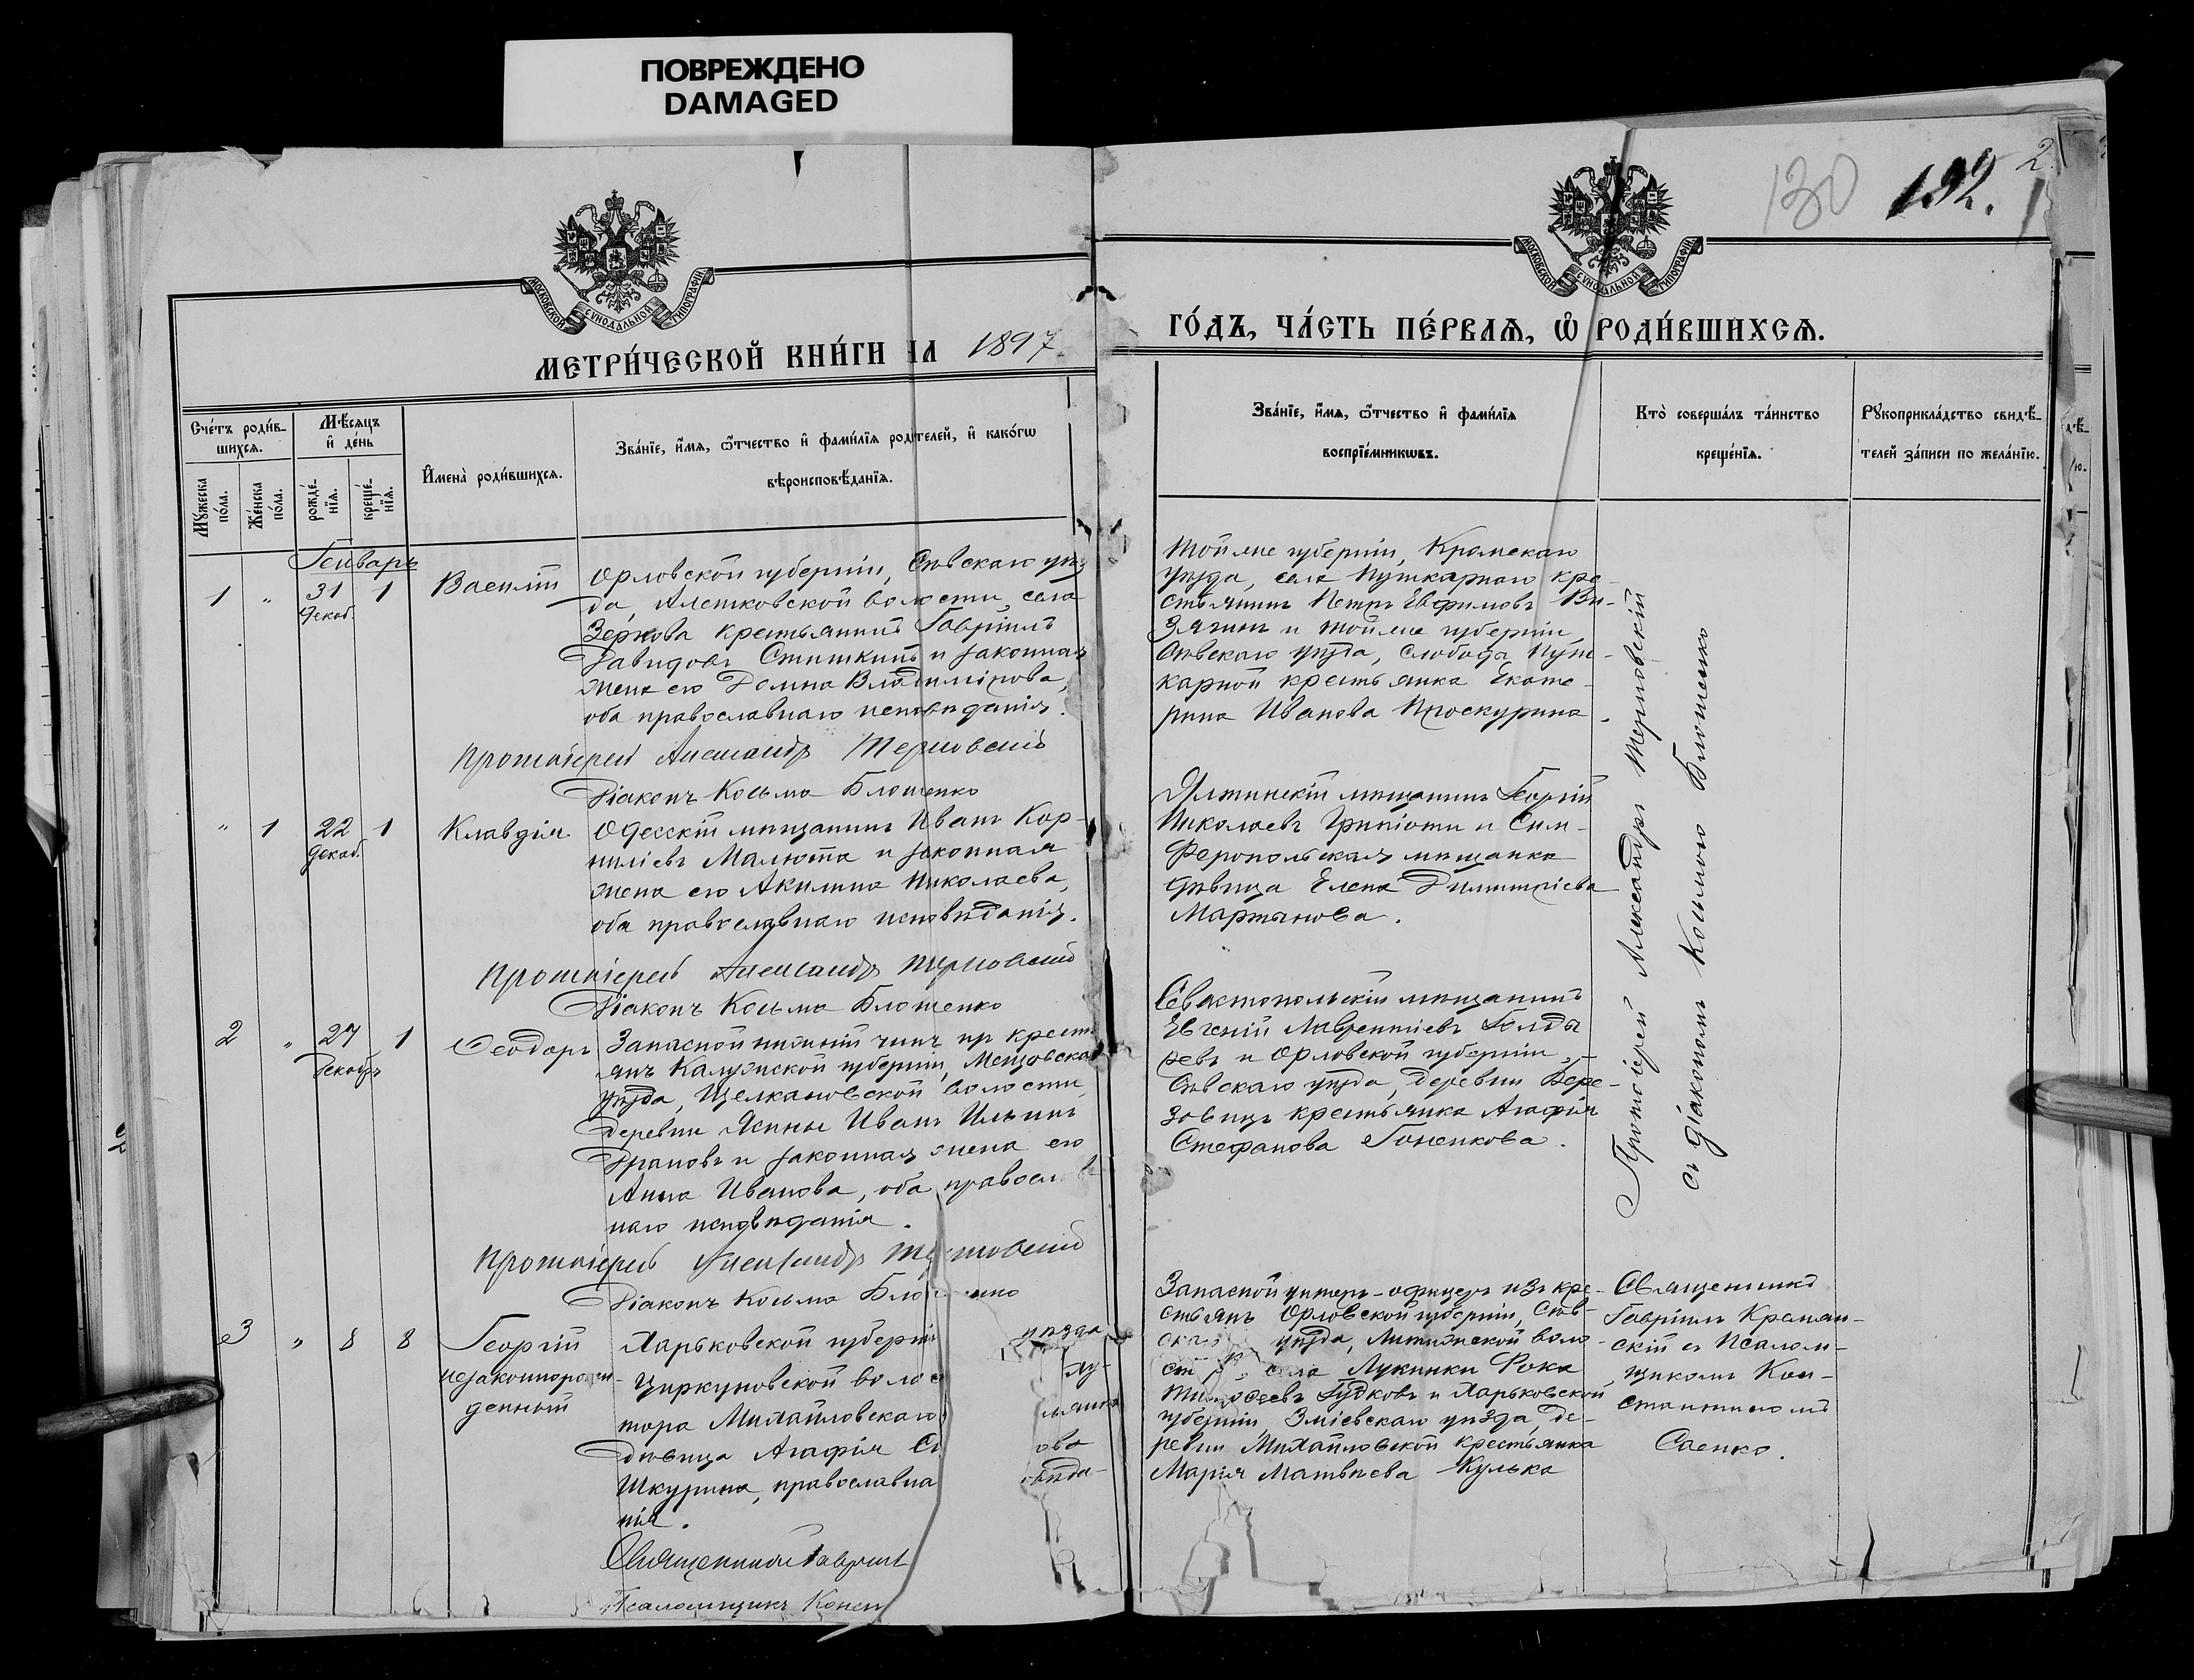 ПОВРЕЖДЕНО
DAMAGED
130
192.
2
МОСКОВСКОЙ СѴНОДАЛЬНОЙ ТИПОГРАФІИ
МОСКОВСКОЙ СѴНОДАЛЬНОЙ ТИПОГРАФІИ
МЕТРИ́ЧЕСКОЙ КНИ́ГИ НА 1897
ГО́ДЪ, ЧА́СТЬ ПЕ́РВАѦ, Ѡ҆ РОДИ́ВШИХСѦ.
Сче́тъ роди́в-
шихсѧ.
Мꙋ́жеска по́ла.
Же́нска по́ла.
Мѣ́сѧцъ и҆ де́нь
рожде́-нїѧ.
креще́-нїѧ.
И҆мена̀ роди́вшихсѧ.
Зва́нїе, и҆́мѧ, ѻ҆́тчество и҆ фами́лїѧ роди́телей, и҆ како́гѡ
вѣроисповѣ́данїѧ.
Зва́нїе, и҆́мѧ, ѻ҆́тчество и҆ фами́лїѧ
воспрїе́мникѡвъ.
Кто̀ соверша́лъ та́инство
креще́нїѧ.
Рꙋкоприкла́дство свидѣ́-
телей за́писи по жела́нїю.
Генварь
1 " 31 Декаб. 1 Василій
Орловской губерніи, Сѣвскаго уѣз
да, Алешковской волости, села
Зернова крестьянинъ Гавріилъ
Давидовъ Стишкинъ и законная
жена его Домна Владимірова,
оба православнаго исповѣданія.
Протоіерей Александръ Терновскій
Діаконъ Косьма Блошенко
Тойже губерніи, Кромскаго
уѣзда, села Пушкарнаго кре-
стьянинъ Петръ Евфимовъ Ви-
зягинъ и тойже губерніи,
Сѣвскаго уѣзда, Слободы Пуш-
карной крестьянка Екате-
рина Иванова Проскурина.
Протоіерей Александръ Терновскій
съ діакономъ Космою Блошенко
" 1 22 декаб. 1 Клавдія
Одесскій мѣщанинъ Иванъ Кор-
ниліевъ Малюта и законная
жена его Акилина Николаева,
оба православнаго исповѣданія.
Протоіерей Александръ Терновскій
Діаконъ Косьма Блошенко
Ялтинскій мѣщанинъ Георгій
Николаевъ Грипіоти и Сим-
феропольская мѣщанка
дѣвица Елена Димитріева
Мартынова.
2 " 27 Декабрь 1 Ѳеодоръ
Запасной нижній чинъ изъ крест
янъ Калужской губерніи, Мещовска
уѣзда, Щелкановской волости
деревни Ясны Иванъ Ильинъ
Драновъ и законная жена его
Анна Иванова, оба православ
наго исповѣданія.
Протоіерей Александръ Терновскій
Діаконъ Косьма Бло енко
Севастопольскій мѣщанинъ
Евгеній Лаврентіевъ Голды
ревъ и Орловской губерніи,
Сѣвскаго уѣзда, деревни Бере-
зовицъ крестьянка Агафія
Стефанова Гоненкова.
3 " 8 8 Георгій
незаконнорож
денный
Харьковской губерні уѣзда,
Циркуновской волос ху-
тора Михайловскаго ьянка
дѣвица Агафія Ст ова
Шкурина, православна овѣда-
нія.
Священникъ Гавріилъ
Псаломщикъ Конст
Запасной унтеръ-офицеръ изъ кре-
стьянъ Орловской губерніи, Сѣв-
ска уѣзда, Литижской воло-
ст , села Лукинки Фока
Тимоѳеевъ Гудковъ и Харьковской
губерніи Зміевскаго уѣзда, де-
ревни Михайловской крестьянка
Марія Матвѣева Кулька
Священникъ
Гавріилъ Краман-
скій съ Псалом-
щикомъ Кон-
стантиномъ
Саенко.